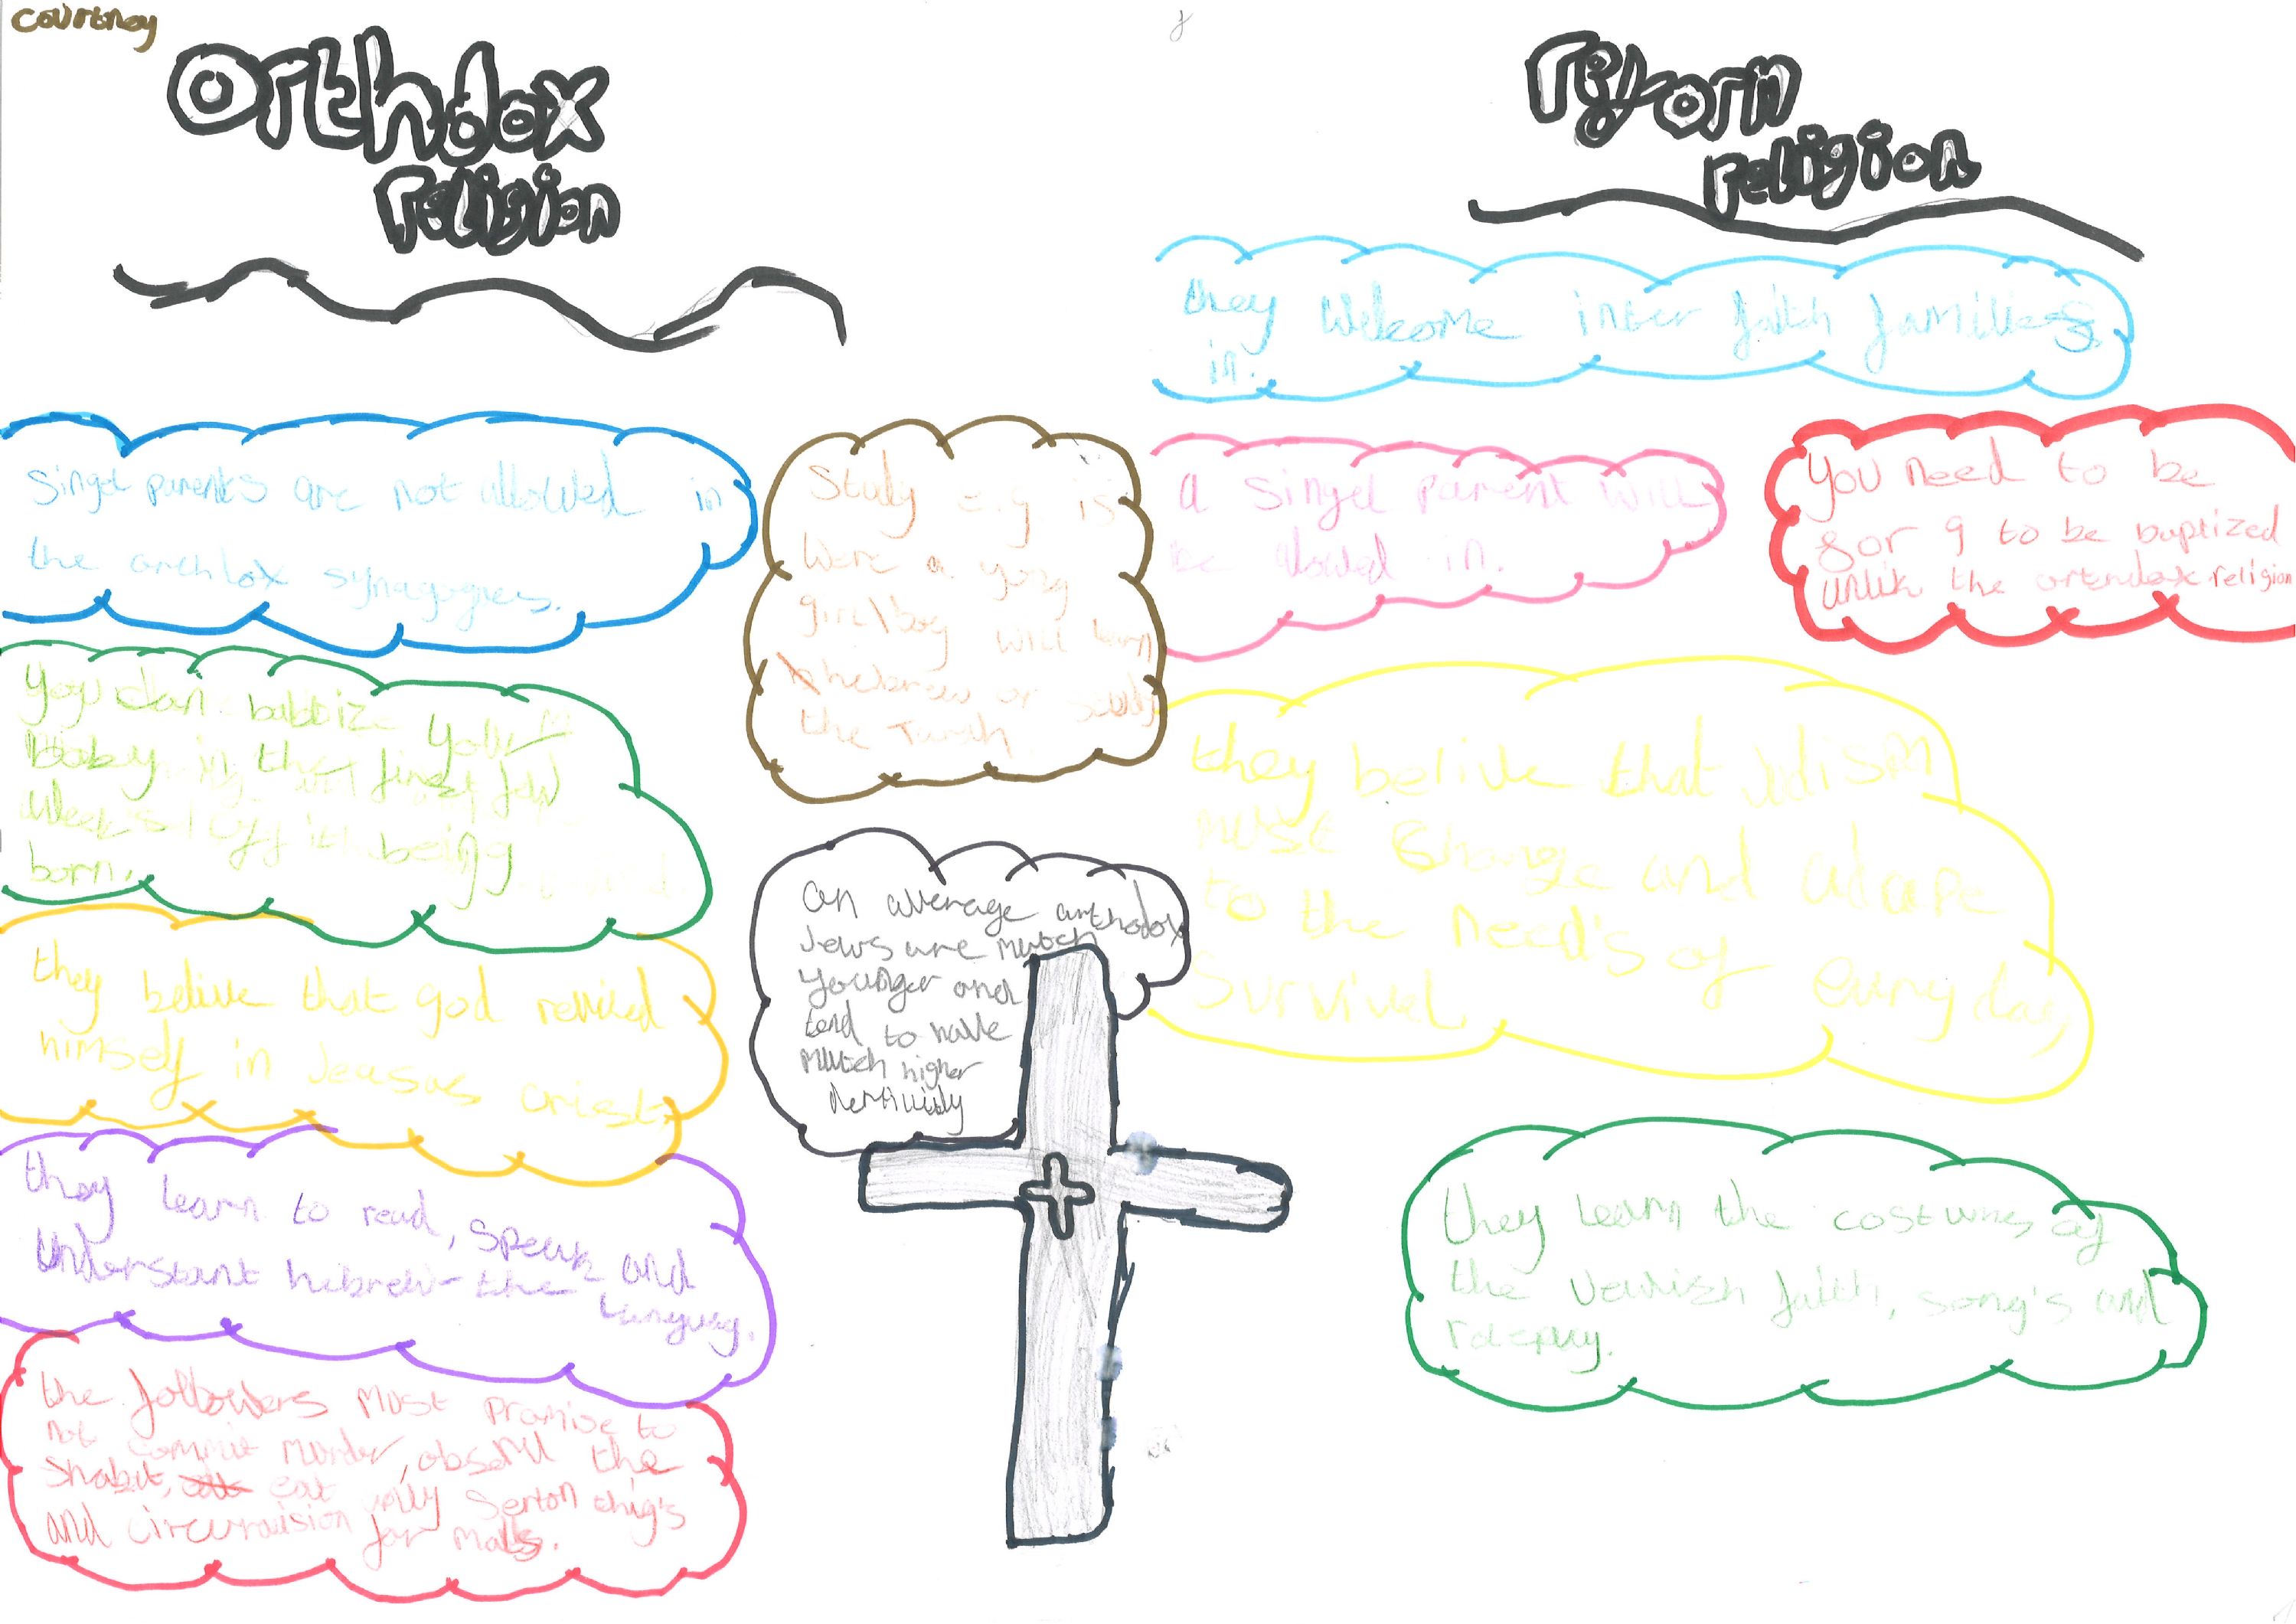 Courtney
Orthdox
religion
reform
religion
they welcome inter faith families
in.
Singel parents are not allowed in
the orthdox synagogues.
Study e.g is
were a yong
girl\boy will learn
hebrew or study
the Turah
a singel parent will
be alowed in.
you need to be
8 or 9 to be baptized
unlik the ortendox religion
you can babtize your
baby in the first few
weeks of it being
born.
they belive that Judism
must change and adape
to the need's of every day
survivel
they belive that god reviled
himself in Jeasus crist
an average orthodox
Jews are mutch
younger and
tend to have
mutch higher
they learn to read, speak and
understant hebrew - the
languag.
they learn the costumes of
the Jewish faith, song's and
roleplay.
the followers must promise to
not commit murder, observe the
Shabit, eat only serton thig's
and circumsision for males.